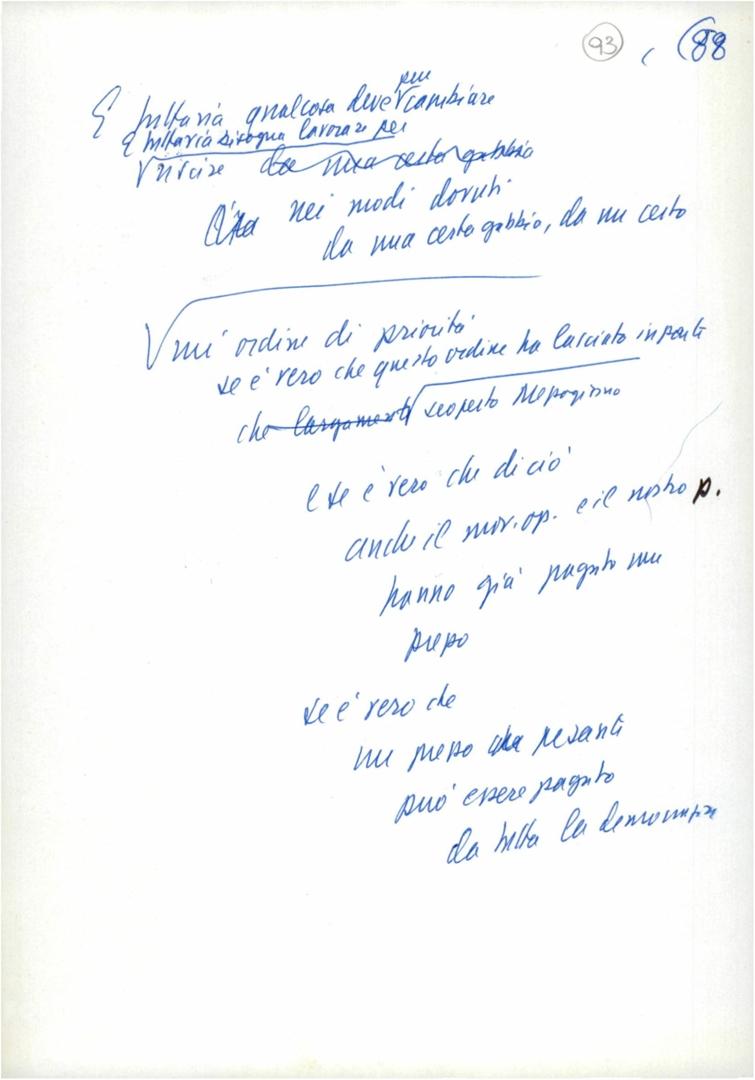 93 ( 88
E tuttavia qualcosa deve pur cambiare
E tuttavia bisogna lavorare per
uscire da una certa gabbia
nei modi dovuti
da una certa gabbia, da un certo
un ordine di priorità
se è vero che questo ordine ha lasciato in parte
che largamente scoperto
e se è vero che di ciò
anche il mov. op. e il nostro p.
hanno già pagato un
prezzo
se è vero che
un prezzo pesante
può essere pagato
da tutta la democrazia